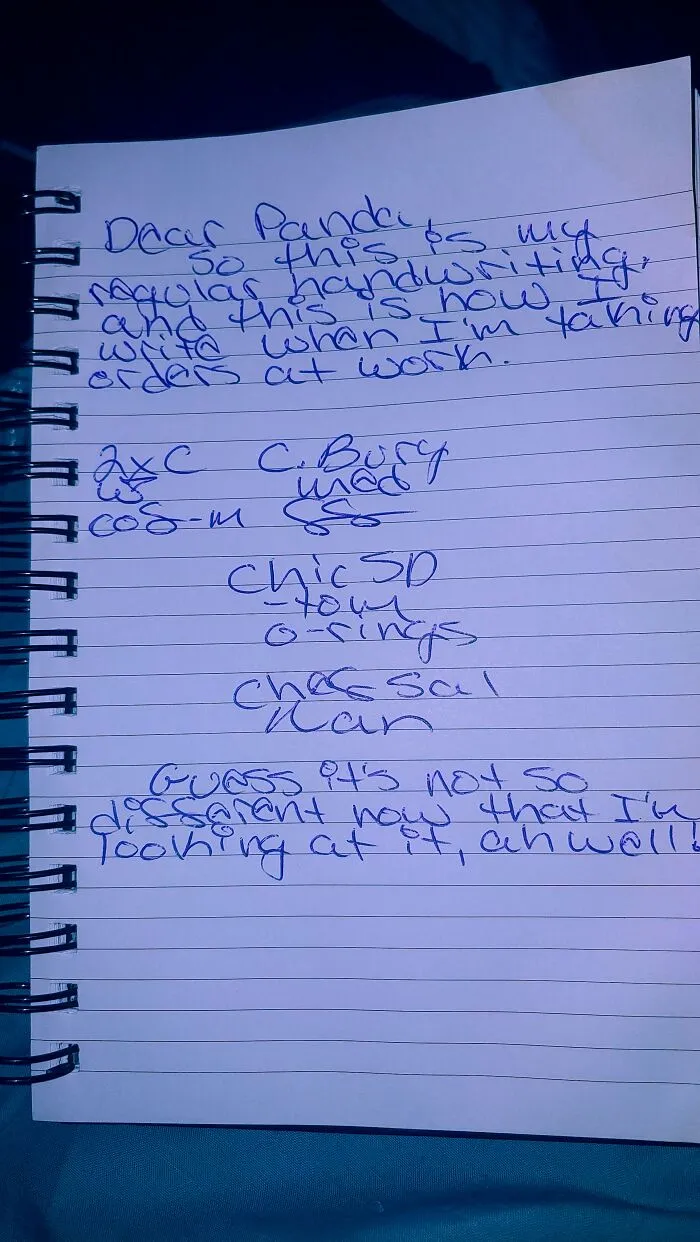 Dear Panda,
So this is my
regular handwriting,
and this is how I
write when I'm taking
orders at work.
2xC C. Burg
WS med
cof-m
Chic SD
-tom
o-rings
Chef Sal
Ran
Guess it's not so
different now that I'm
looking at it, ah well!